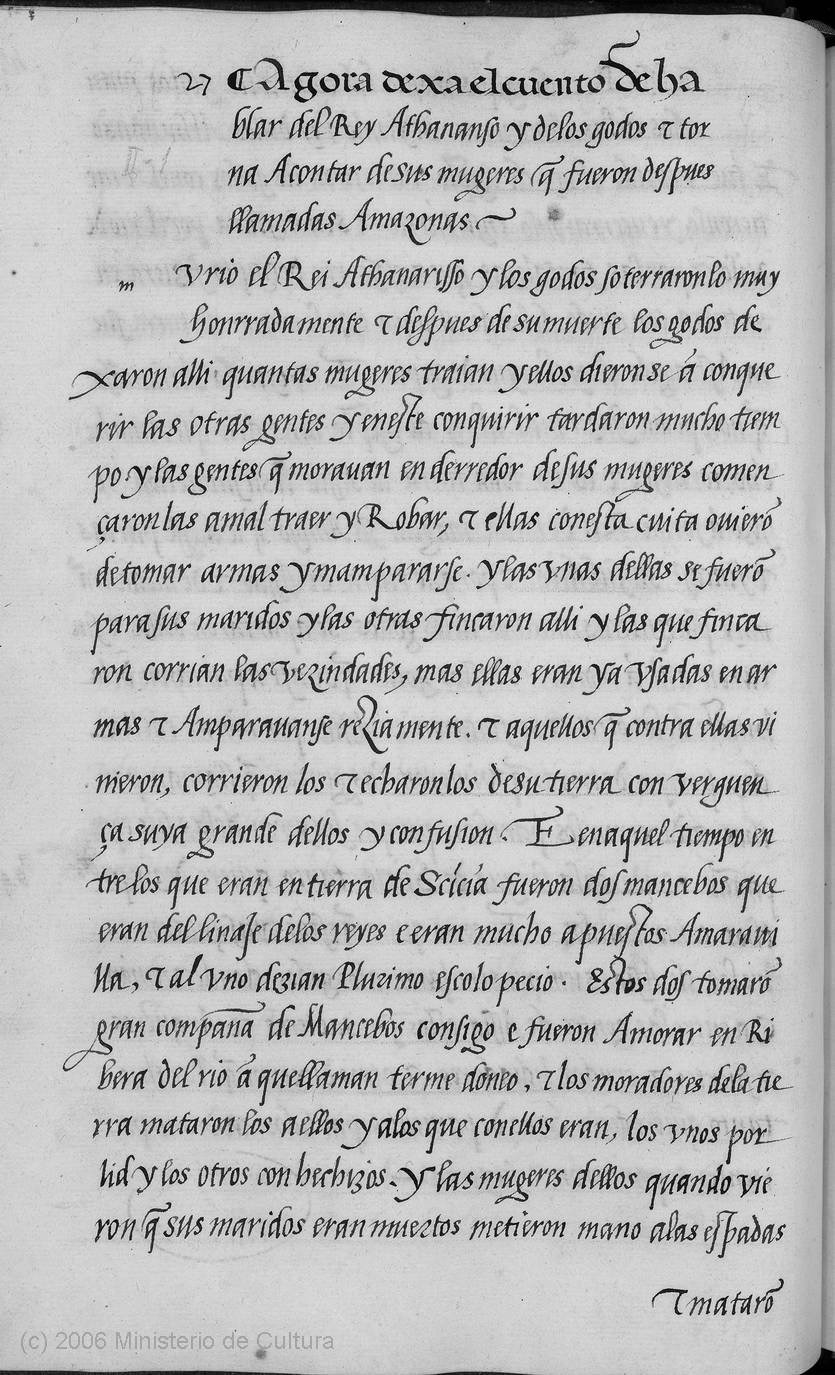 27 ¶ Agora dexa el cuento de ha
blar del Rey Athananso y delos godos τ tor
na Acontar de sus mugeres q̃ fueron despues
llamadas Amazonas ~
m Vrio el Rei Athanarisso y los godos soterraronlo muy
honrradamente τ despues de su muerte los godos de
xaron alli quantas mugeres traian y ellos dieronse á conque
rir las otras gentes y eneste conquirir tardaron mucho tiem
po y las gentes q̃ morauan en derredor de sus mugeres comen
çaron las amal traer y Robar, τ ellas conesta cuita ouierõ
de tomar armas y mampararse. y las vnas dellas se fuerõ
para sus maridos y las otras fincaron alli y las que finca
ron corrian las vezindades, mas ellas eran ya vsadas en ar
mas τ Amparauanse reziamente. τ aquellos q̃ contra ellas vi
nieron, corrieron los τ echaronlos de su tierra con verguen
ça suya grande dellos y confusion. E enaquel tiempo en
tre los que eran en tierra de Scicia fueron dos mancebos que
eran del linaje delos reyes e eran mucho apuestos Amaraui
lla, τ al vno dezian Plurimo escolopecio. Estos dos tomarõ
gran compaña de Mancebos consigo e fueron Amorar en Ri
bera del rio á quellaman terme doneo, τ los moradores dela tie
rra mataron los aellos y alos que conellos eran, los vnos por
lid y los otros con hechizos. y las mugeres dellos quando vie
ron q̃ sus maridos eran muertos metieron mano alas espadas
τ matarõ
(c) 2006 Ministerio de Cultura